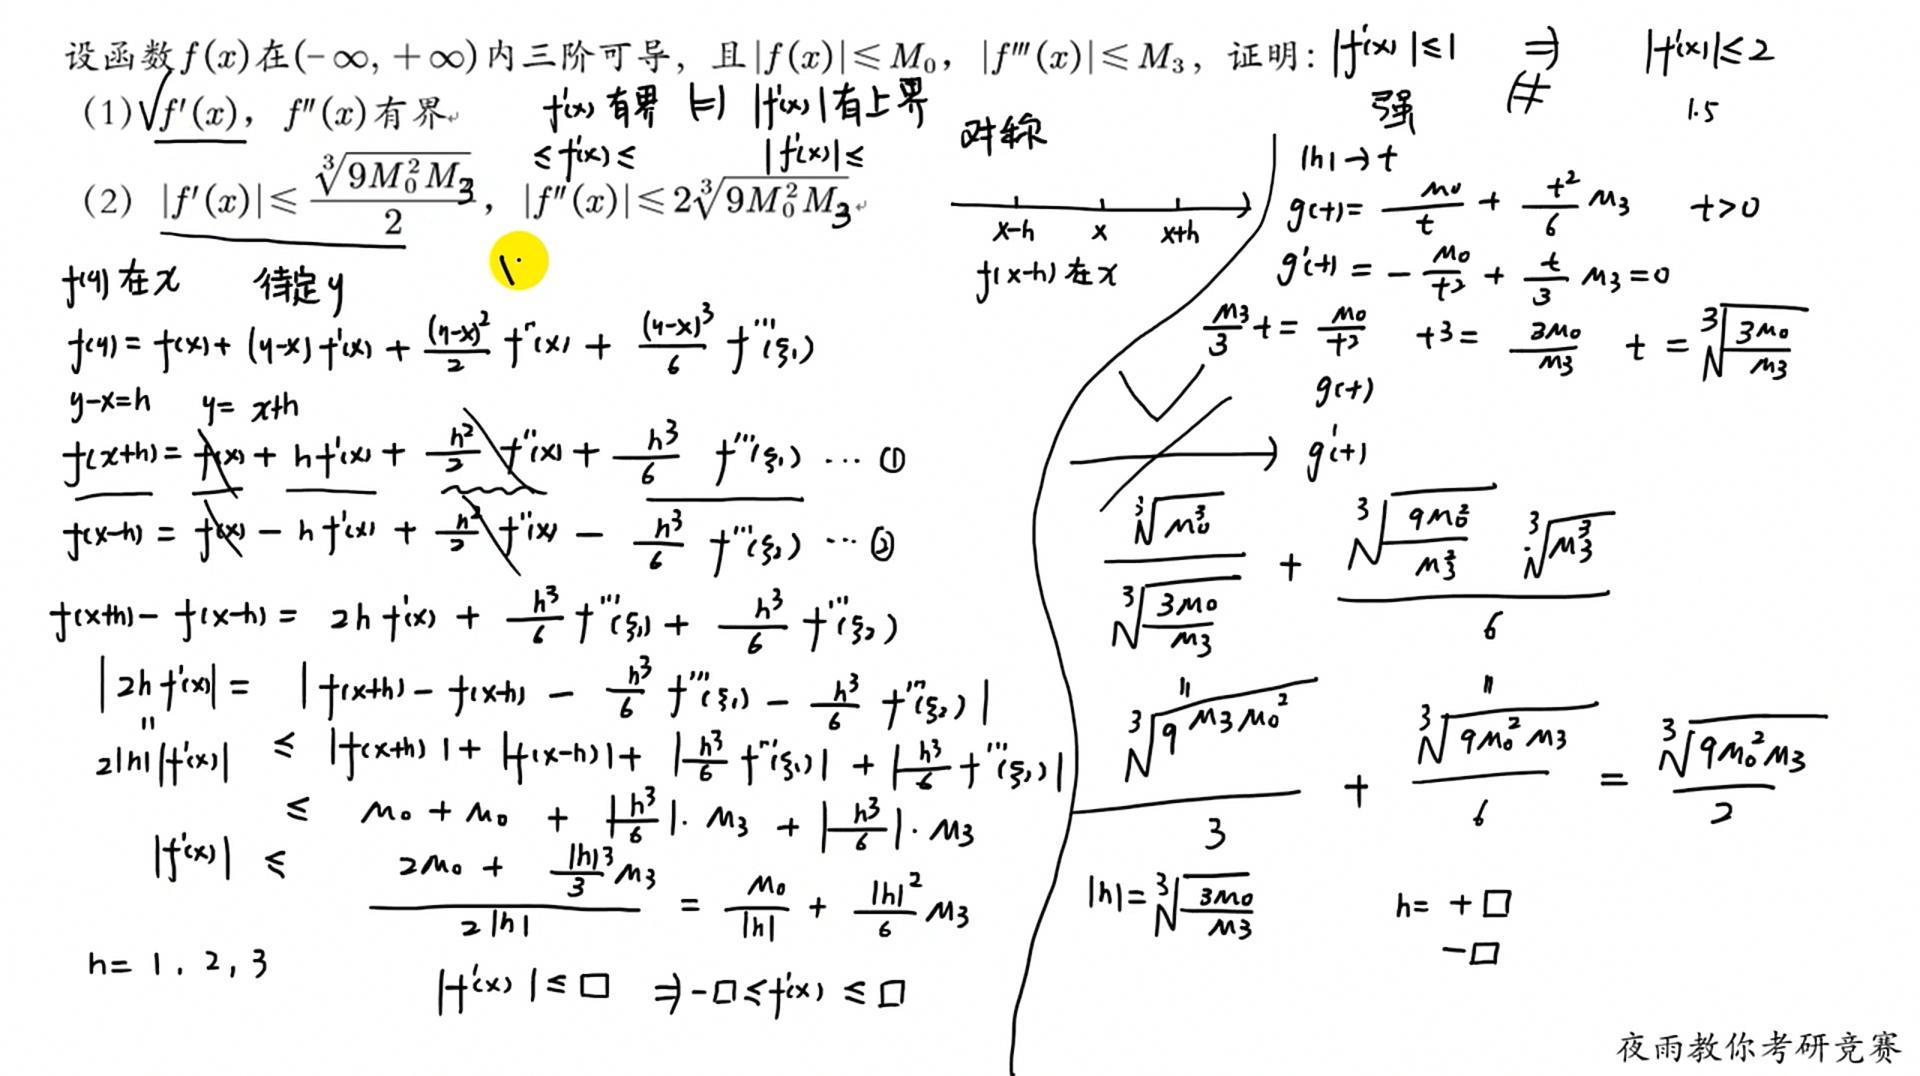 设函数f(x)在(-∞, +∞)内三阶可导，且|f(x)|≤M₀，|f'''(x)|≤M₃，证明：
|f'(x)|≤1 ⇒ |f'(x)|≤2
(1) √f'(x)，f''(x)有界
f'(x) 有界 |=| |f'(x)|有上界
强 ⇍ 1.5
≤f'(x)≤ |f'(x)|≤
(2) |f'(x)|≤∛(9M₀²M₃)/2，|f''(x)|≤2∛(9M₀²M₃)
f(y) 在 x 待定y
f(y) = f(x) + (y-x) f'(x) + (y-x)²/2 f''(x) + (y-x)³/6 f'''(ξ₁)
y-x=h y= x+h
f(x+h) = f(x) + h f'(x) + h²/2 f''(x) + h³/6 f'''(ξ₁) ··· ①
f(x-h) = f(x) - h f'(x) + h²/2 f''(x) - h³/6 f'''(ξ₂) ··· ②
f(x+h) - f(x-h) = 2h f'(x) + h³/6 f'''(ξ₁) + h³/6 f'''(ξ₂)
|2h f'(x)| = |f(x+h) - f(x-h) - h³/6 f'''(ξ₁) - h³/6 f'''(ξ₂)|
"
2|h||f'(x)| ≤ |f(x+h)| + |f(x-h)| + |h³/6 f'''(ξ₁)| + |h³/6 f'''(ξ₂)|
≤ M₀ + M₀ + |h³/6|·M₃ + |h³/6|·M₃
|f'(x)| ≤ (2M₀ + |h|³/3 M₃)/(2|h|) = M₀/|h| + |h|²/6 M₃
h= 1, 2, 3
|f'(x)| ≤ □ ⇒ -□ ≤ f'(x) ≤ □
对称
x-h x x+h
f(x-h) 在 x
|h|→t
g(t) = M₀/t + t²/6 M₃ t>0
g'(t) = - M₀/t² + t/3 M₃ = 0
M₃/3 t = M₀/t² t³ = 3M₀/M₃ t = ∛(3M₀/M₃)
g(t)
g'(t)
∛(M₀³)/∛(3M₀/M₃) + ∛(9M₀²/M₃²) ∛(M₃³)/6
" "
∛(9 M₃M₀²)/3 + ∛(9M₀²M₃)/6 = ∛(9M₀²M₃)/2
|h| = ∛(3M₀/M₃) h= +□
-□
夜雨教你考研竞赛